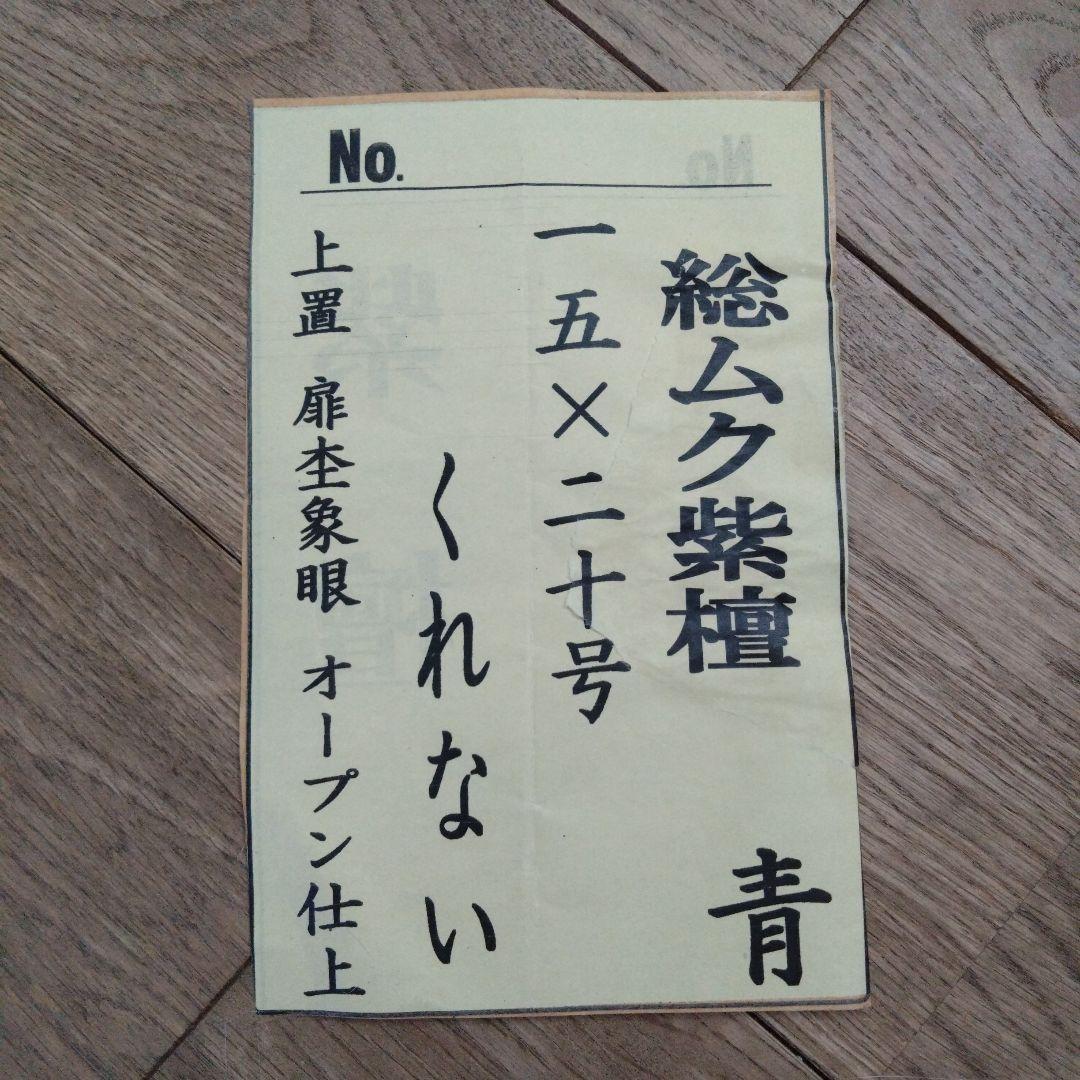 No.
総ムク紫檀 青
一五×二十号
くれない
上置 扉杢象眼 オープン仕上